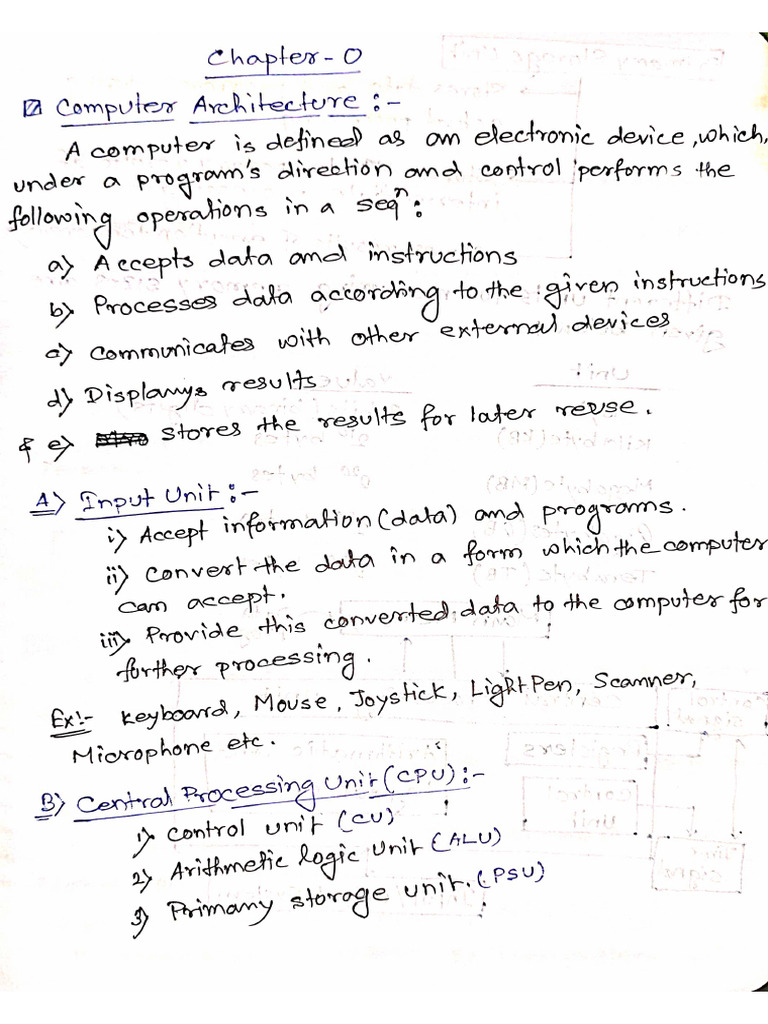 Chapter-0
Computer Architecture:-
A computer is defined as an electronic device, which,
under a program's direction and control performs the
following operations in a seqⁿ:
a) Accepts data and instructions
b) Processes data according to the given instructions
c) Communicates with other external devices
d) Displanys results
& e) stores the results for later reuse.
A) Input Unit:-
i) Accept information (data) and programs.
ii) Convert the data in a form which the computer
can accept.
iii) Provide this converted data to the computer for
further processing.
Ex:- Keyboard, Mouse, Joystick, Light Pen, Scanner,
Microphone etc.
B) Central Processing Unit (CPU):-
1) Control unit (CU)
2) Arithmetic logic unit (ALU)
3) Primany storage unit. (PSU)